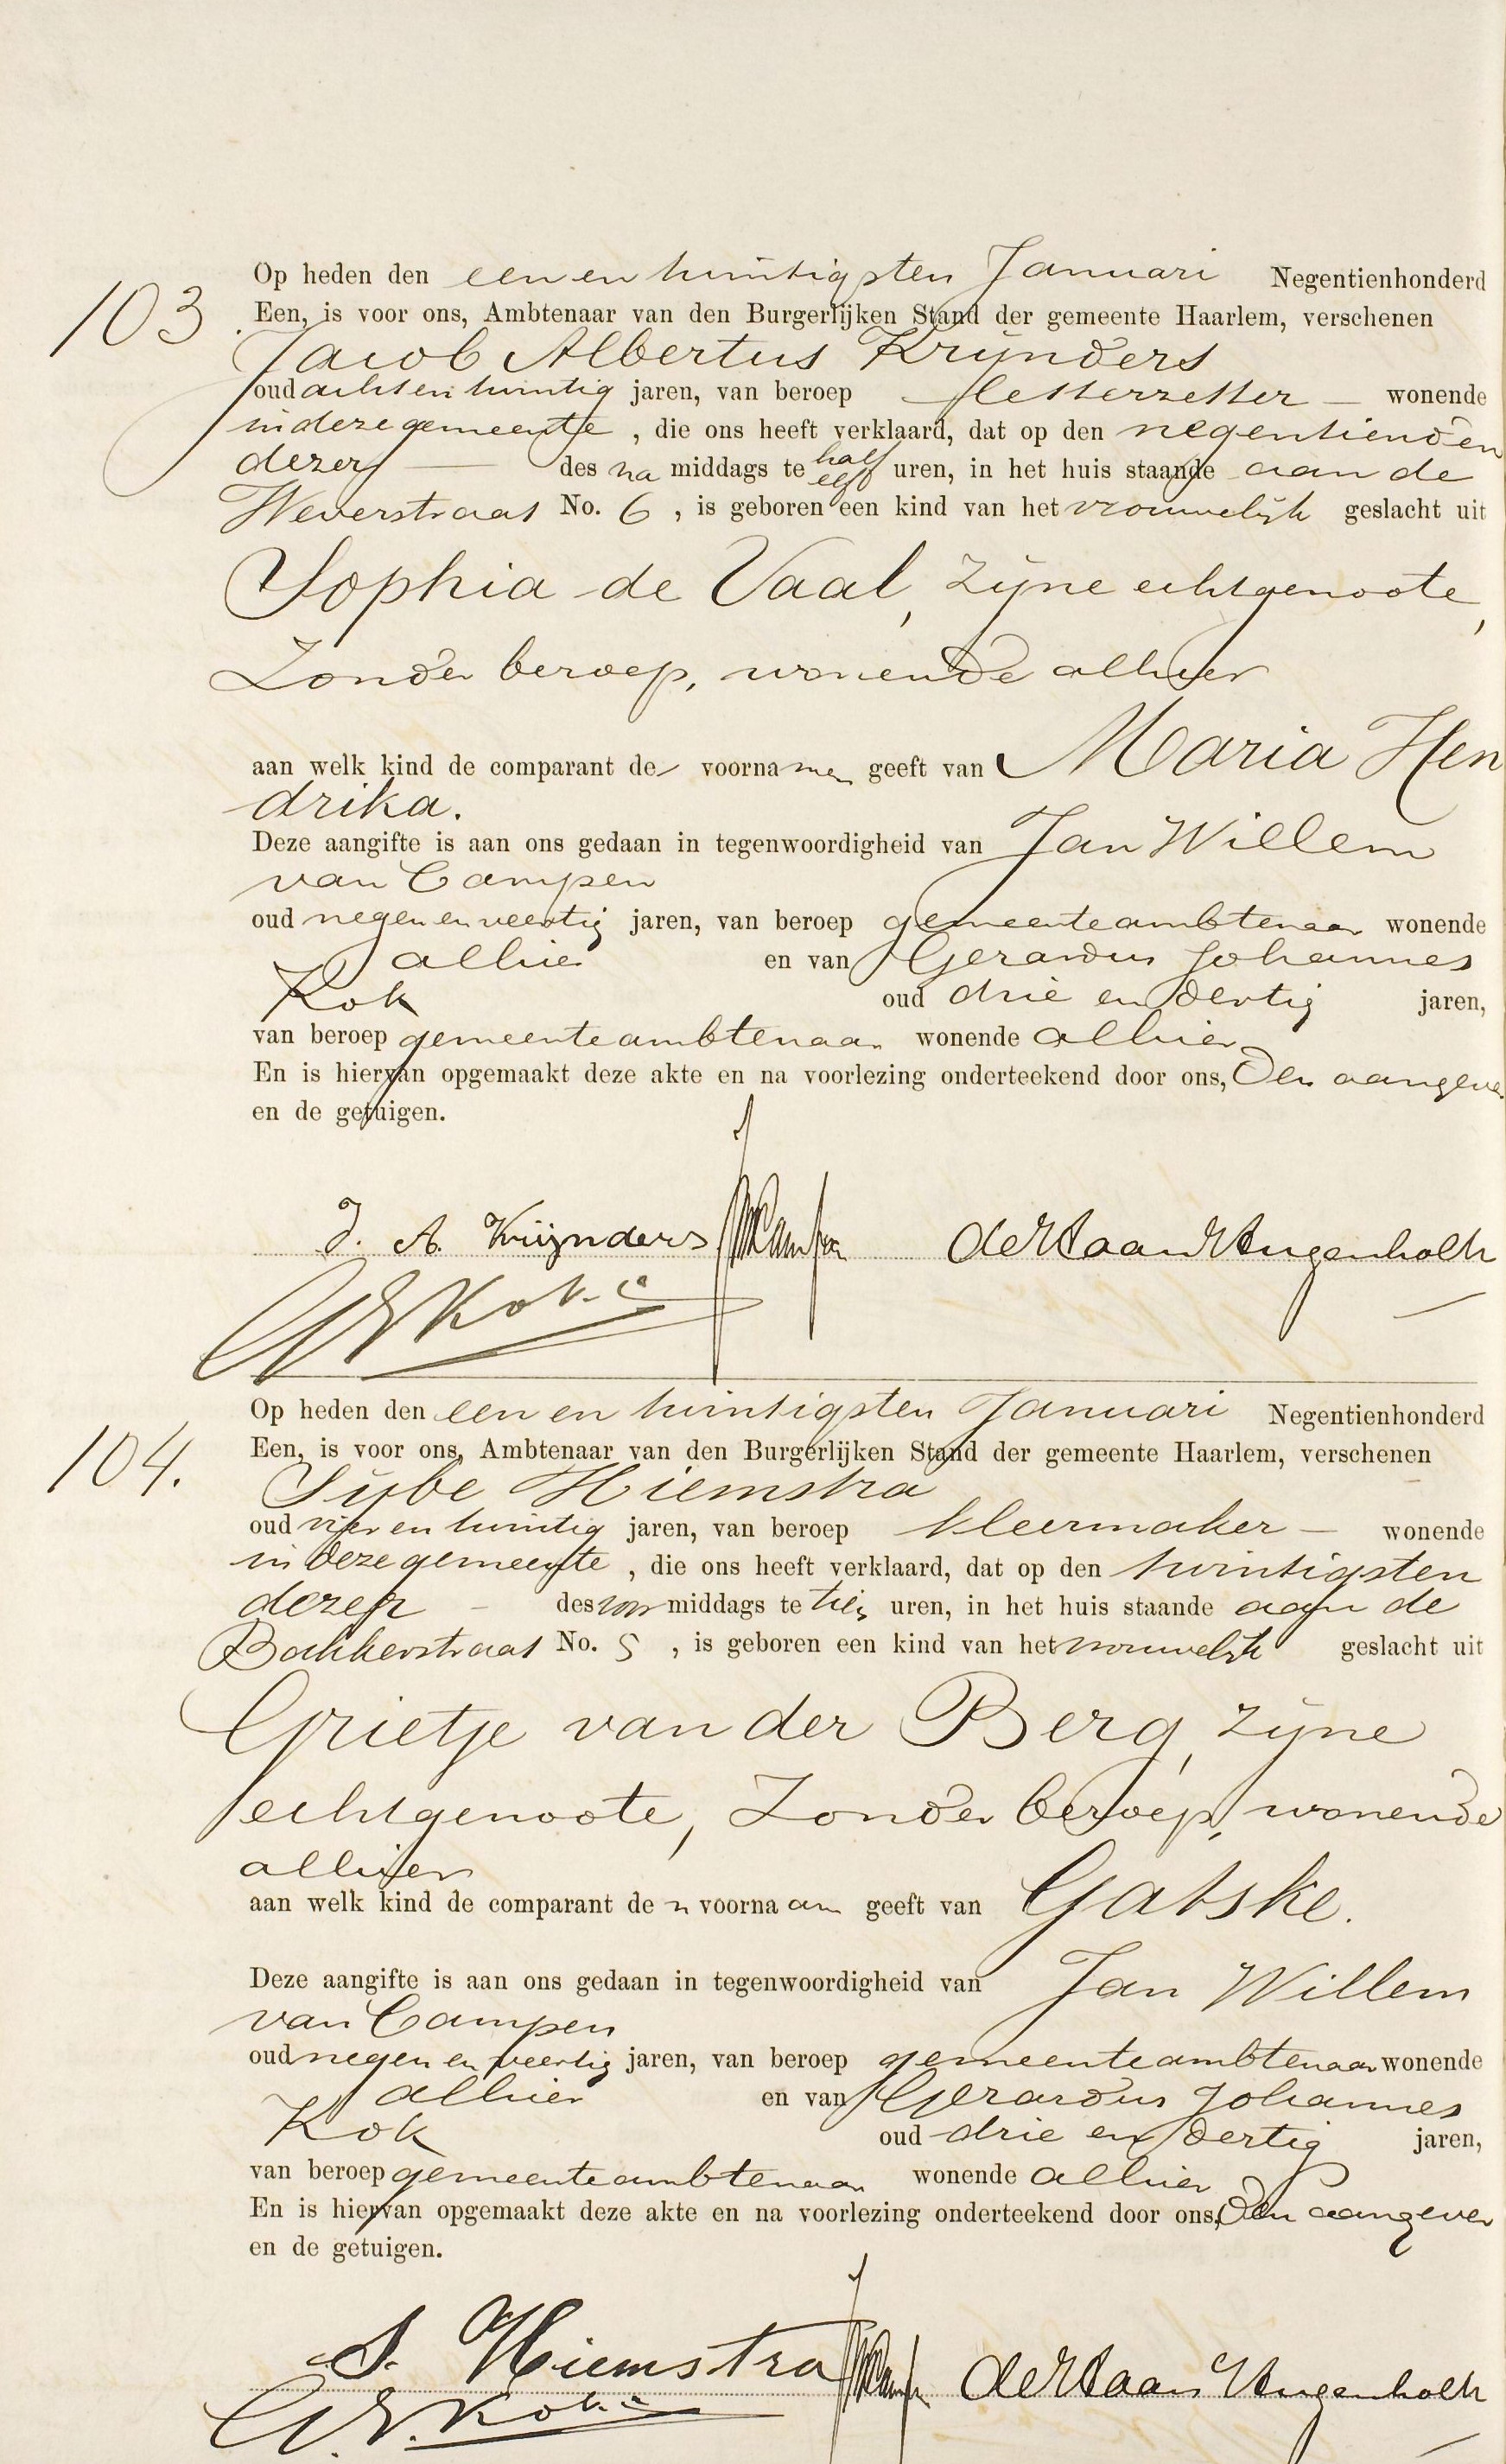 103.
Op heden den een en twintigsten Januari Negentienhonderd
Een, is voor ons, Ambtenaar van den Burgerlijken Stand der gemeente Haarlem, verschenen
Jacob Albertus Krijnders
oud acht en twintig jaren, van beroep letterzetter — wonende
in deze gemeente, die ons heeft verklaard, dat op den negentienden
dezer — des na middags te half elf uren, in het huis staande aan de
Weverstraat No. 6, is geboren een kind van het vrouwelijk geslacht uit
Sophia de Vaal, zijne echtgenoote,
zonder beroep, wonende alhier
aan welk kind de comparant de voornamen geeft van Maria Hen
drika.
Deze aangifte is aan ons gedaan in tegenwoordigheid van Jan Willem
van Campen
oud negen en veertig jaren, van beroep gemeenteambtenaar wonende
alhier en van Gerardus Johannes
Kok oud drie en dertig jaren,
van beroep gemeenteambtenaar wonende alhier
En is hiervan opgemaakt deze akte en na voorlezing onderteekend door ons, den aangever
en de getuigen.
J. A. Krijnders JWCampen de Haan Hugenholtz
GJKok
104.
Op heden den een en twintigsten Januari Negentienhonderd
Een, is voor ons, Ambtenaar van den Burgerlijken Stand der gemeente Haarlem, verschenen
Sijbe Hiemstra
oud vier en twintig jaren, van beroep kleermaker — wonende
in deze gemeente, die ons heeft verklaard, dat op den twintigsten
dezer — des voor middags te tien uren, in het huis staande aan de
Bakkerstraat No. 5, is geboren een kind van het vrouwelijk geslacht uit
Grietje van der Berg, zijne
echtgenoote, zonder beroep, wonende
alhier
aan welk kind de comparant den voornaam geeft van Gatske.
Deze aangifte is aan ons gedaan in tegenwoordigheid van Jan Willem
van Campen
oud negen en veertig jaren, van beroep gemeenteambtenaar wonende
alhier en van Gerardus Johannes
Kok oud drie en dertig jaren,
van beroep gemeenteambtenaar wonende alhier
En is hiervan opgemaakt deze akte en na voorlezing onderteekend door ons, den aangever
en de getuigen.
S. Hiemstra JWCampen de Haan Hugenholtz
G.J. Kok